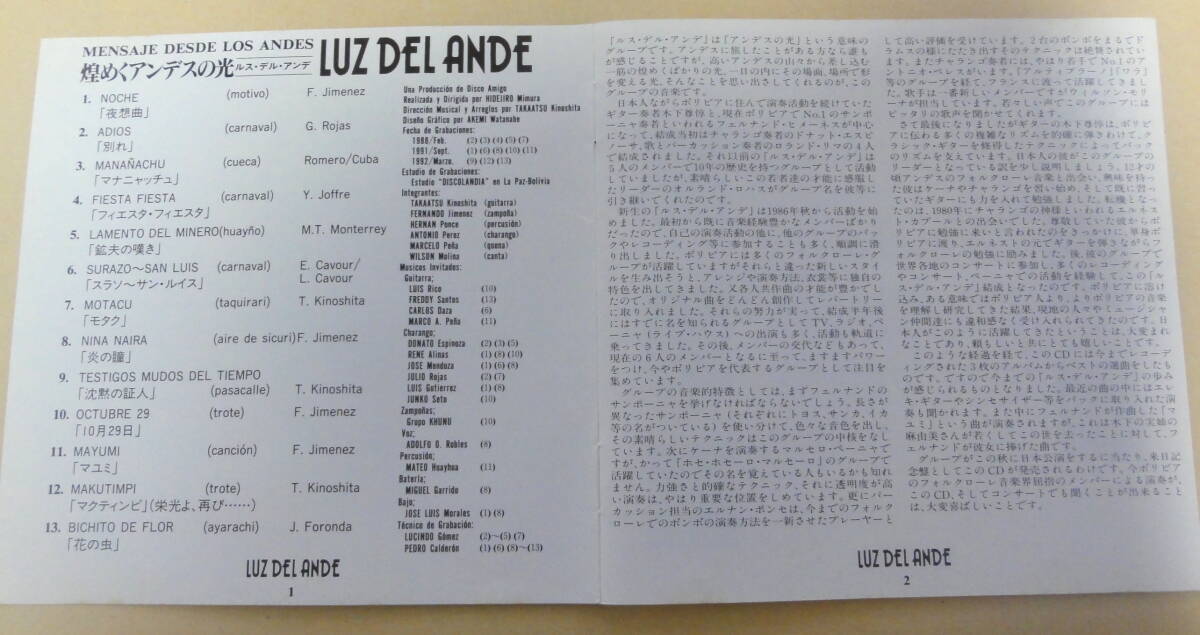 MENSAJE DESDE LOS ANDES
煌めくアンデスの光ルス・デル・アンデ
LUZ DEL ANDE
1. NOCHE (motivo) F. Jimenez
「夜想曲」
2. ADIOS (carnaval) G. Rojas
「別れ」
3. MANAÑACHU (cueca) Romero/Cuba
「マナニャッチュ」
4. FIESTA FIESTA (carnaval) Y. Joffre
「フィエスタ・フィエスタ」
5. LAMENTO DEL MINERO (huayño) M.T. Monterrey
「鉱夫の嘆き」
6. SURAZO〜SAN LUIS (carnaval) E. Cavour/
「スラソ〜サン・ルイス」 L. Cavour
7. MOTACU (taquirari) T. Kinoshita
「モタク」
8. NINA NAIRA (aire de sicuri) F. Jimenez
「炎の瞳」
9. TESTIGOS MUDOS DEL TIEMPO
「沈黙の証人」 (pasacalle) T. Kinoshita
10. OCTUBRE 29 (trote) F. Jimenez
「10月29日」
11. MAYUMI (canción) F. Jimenez
「マユミ」
12. MAKUTIMPI (trote) T. Kinoshita
「マクティンピ」(栄光よ、再び……)
13. BICHITO DE FLOR (ayarachi) J. Foronda
「花の虫」
Una Producción de Disco Amigo
Realizada y Dirigida por HIDEJIRO Mimura
Dirección Musical y Arreglos por TAKAATSU Kinoshita
Diseño Gráfico por AKEMI Watanabe
Fecha de Grabaciones:
1988/Feb. (2) (3) (4) (5) (7)
1991/Sept. (1) (6) (8) (10) (11)
1992/Marzo. (9) (12) (13)
Estudio de Grabaciones:
Estudio "DISCOLANDIA" en La Paz-Bolivia
Integrantes:
TAKAATSU Kinoshita (guitarra)
FERNANDO Jimenez (zampoña)
HERNAN Ponce (percusión)
ANTONIO Perez (charango)
MARCELO Peña (quena)
WILSON Molina (canta)
Musicos Invitados:
Guitarra;
LUIS Rico (10)
FREDDY Santos (13)
CARLOS Daza (6)
MARCO A. Peña (11)
Charango;
DONATO Espinoza (2) (3) (5)
RENE Alinas (1) (8) (10)
JOSE Mendoza (1) (6) (8)
JULIO Rojas (2) (7)
LUIS Gutierrez (1) (8)
JUNKO Seto (10)
Zampoñas;
Grupo KHUNU (10)
Voz;
ADOLFO O. Robles (8)
Percusión;
MATEO Huayhua (11)
Batería;
MIGUEL Garrido (8)
Bajo;
JOSE LUIS Morales (1) (8)
Técnico de Grabación:
LUCINDO Gómez (2)〜(5) (7)
PEDRO Calderón (1) (6) (8)〜(13)
LUZ DEL ANDE
1
「ルス・デル・アンデ」は「アンデスの光」という意味の
グループです。アンデスに旅したことがある方なら誰も
が感じることですが、高いアンデスの山々から差し込む
一筋の煌めくばかりの光、一日の内にその場面、場所で形
を変える光、そんなことを思い出さてくれるのが、この
グループの音楽です。
日本人ながらボリビアに住んで演奏活動を続けていた
ギター奏者木下尊惇と、現在ボリビアでNo.1のサンポ
ーニャ奏者といわれるフェルナンド・ヒメーネスが中心
になって、結成当初はチャランゴ奏者のドナット・エスピ
ノーサ、歌とパーカッション奏者のロランド・リマの4人
で結成されました。それ以前の「ルス・デル・アンデ」は
5人のメンバーで10年の歴史を持つグループとして活動
していましたが、素晴らしいこの若者達の才能に感服し
たリーダーのオルランド・ロハスがグループ名を彼等に
引き継いでくれたのです。
新生の「ルス・デル・アンデ」は1986年秋から活動を始
めました。最初から既に音楽経験豊かなメンバーばかり
だったので、自己の演奏活動の他に、他のグループのバッ
クやレコーディング等に参加することも多く、順調に滑
り出しました。ボリビアには多くのフォルクローレ・グ
ループが活躍していますがそれらと違った新しいスタイ
ルを生み出そうと、アレンジや演奏方法、衣裳等に独自の
特色を出してきました。又各人共作曲の才能が豊かでし
たので、オリジナル曲をどんどん創作してレパートリー
に取り入れました。それらの努力が実って、結成半年後
にはすでに名を知られるグループとしてTV・ラジオ、ペ
ーニャ(ライブ・ハウス)への出演も多く、活動も軌道に
乗ってきました。その後、メンバーの交代などもあって、
現在の6人のメンバーとなるに至って、ますますパワー
をつけ、今やボリビアを代表するグループとして注目を
集めています。
グループの音楽的特徴としては、まずフェルナンドの
サンポーニャを挙げなければならないでしょう。長さが
異なったサンポーニャ(それぞれにトヨス、サンカ、イカ
等の名がついている)を使い分けて、色々な音色を出し、
その素晴らしいテクニックはこのグループの中核をなし
ています。次にケーナを演奏するマルセロ・ペーニャで
すが、かって「ホセ・ホセーロ・マルセーロ」のグループで
活躍していたのでその名を覚えている人もいるかも知れ
ません。力強さと的確なテクニック、それに透明度が高
い演奏は、やはり重要な位置をしめています。更にパー
カッション担当のエルナン・ポンセは、今までのフォルク
ローレでのボンボの演奏方法を一新させたプレーヤーと
して高い評価を受けています。2台のボンボをまるでド
ラムスの様にたたき出すそのテクニックは絶賛されてい
ます。またチャランゴ奏者には、やはり若手でNo.1のア
ントニオ・ペレスがいます。「アルティプラーノ」「ワラ」
等のグループを経て、フランスに渡って活躍してきまし
た。歌手は一番新しいメンバーですがウィルソン・モリ
ーナが担当しています。若々しい声でこのグループには
ピッタリの歌声を聞かせてくれます。
さて最後になりましたがギターの木下尊惇は、ボリビ
アに伝わる多くの複雑なリズムを的確に弾きわけて、ク
ラシック・ギターを修得したテクニックによってバック
のリズムを支えています。日本人の彼がこのグループの
リーダーとなっている訳を少し説明しましょう。12才の
頃アンデスのフォルクローレ音楽と出会い、興味を持っ
た彼はケーナやチャランゴを習い始め、そして既に習っ
ていたギターにも力を入れて勉強しました。転機となっ
たのは、1980年にチャランゴの神様といわれるエルネス
ト・カブールとの出会いでした。尊敬していた彼からボ
リビアに勉強に来いと言われたのをきっかけに、単身ボ
リビアに渡り、エルネストの元でギターを弾きながらフ
ォルクローレの勉強に励みました。後、彼のグループで
世界各地のコンサートに参加し、多くのレコーディング
やコンサート、ペーニャでの活動を経験して、この「ル
ス・デル・アンデ」結成となったのです。ボリビアに溶け
込み、ある意味ではボリビア人より、よりボリビアの音楽
を理解し研究してきた結果、現地の人々やミュージシャ
ン仲間達にも違和感なく受け入れられてきたのです。日
本人がこのように活躍してきたということは、大変まれ
なことであり、頼もしいと共にとても嬉しいことです。
このような経過を経て、このCDには今までレコーデ
ィングされた3枚のアルバムからベストの選曲をしたも
のです。ですので今までの「ルス・デル・アンデ」の歩み
が感じられるものとなりました。最近の曲の中にはエレ
キ・ギターやシンセサイザー等をバックに取り入れた演
奏も聞かれます。また中にフェルナンドが作曲した「マ
ユミ」という曲が演奏されますが、これは木下の実妹の
麻由美さんが若くしてこの世を去ったことに対して、フ
ェルナンドが彼女に捧げた曲です。
グループがこの秋に日本公演をするに当たり、来日記
念盤としてこのCDが発売されるわけです。今ボリビア
のフォルクローレ音楽界屈指のメンバーによる演奏が、
このCD、そしてコンサートでも聞くことが出来ること
は、大変喜ばしいことです。
LUZ DEL ANDE
2